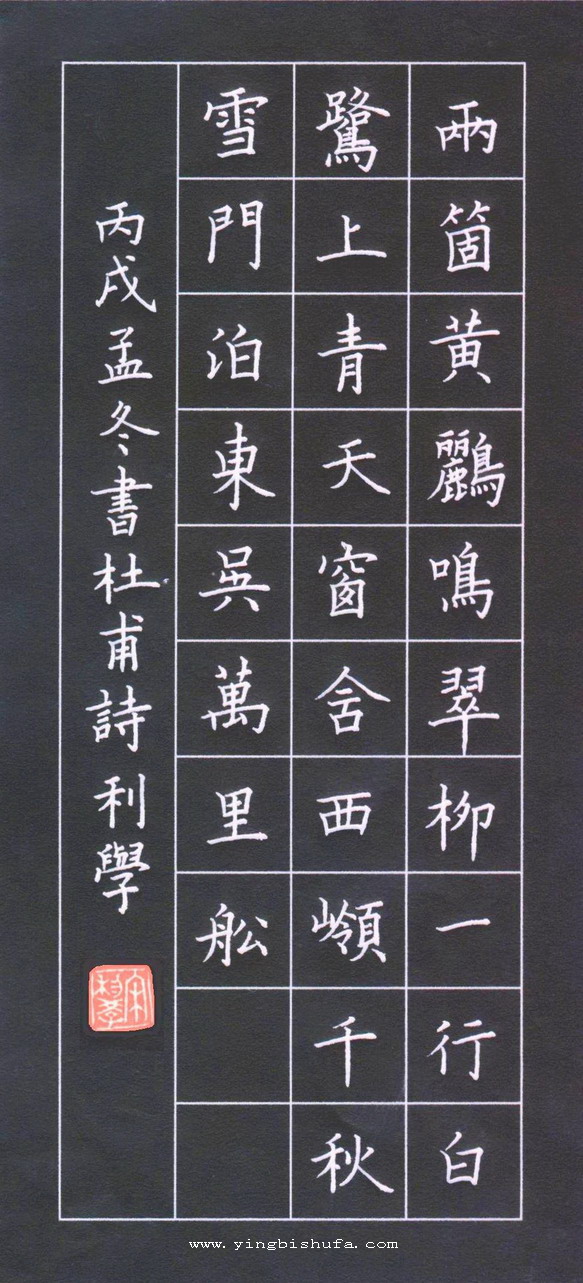 兩箇黄鸝鳴翠柳一行白
鷺上青天窗含西嶺千秋
雪門泊東吳萬里舩
丙戌孟冬書杜甫詩利學
www.yingbishufa.com